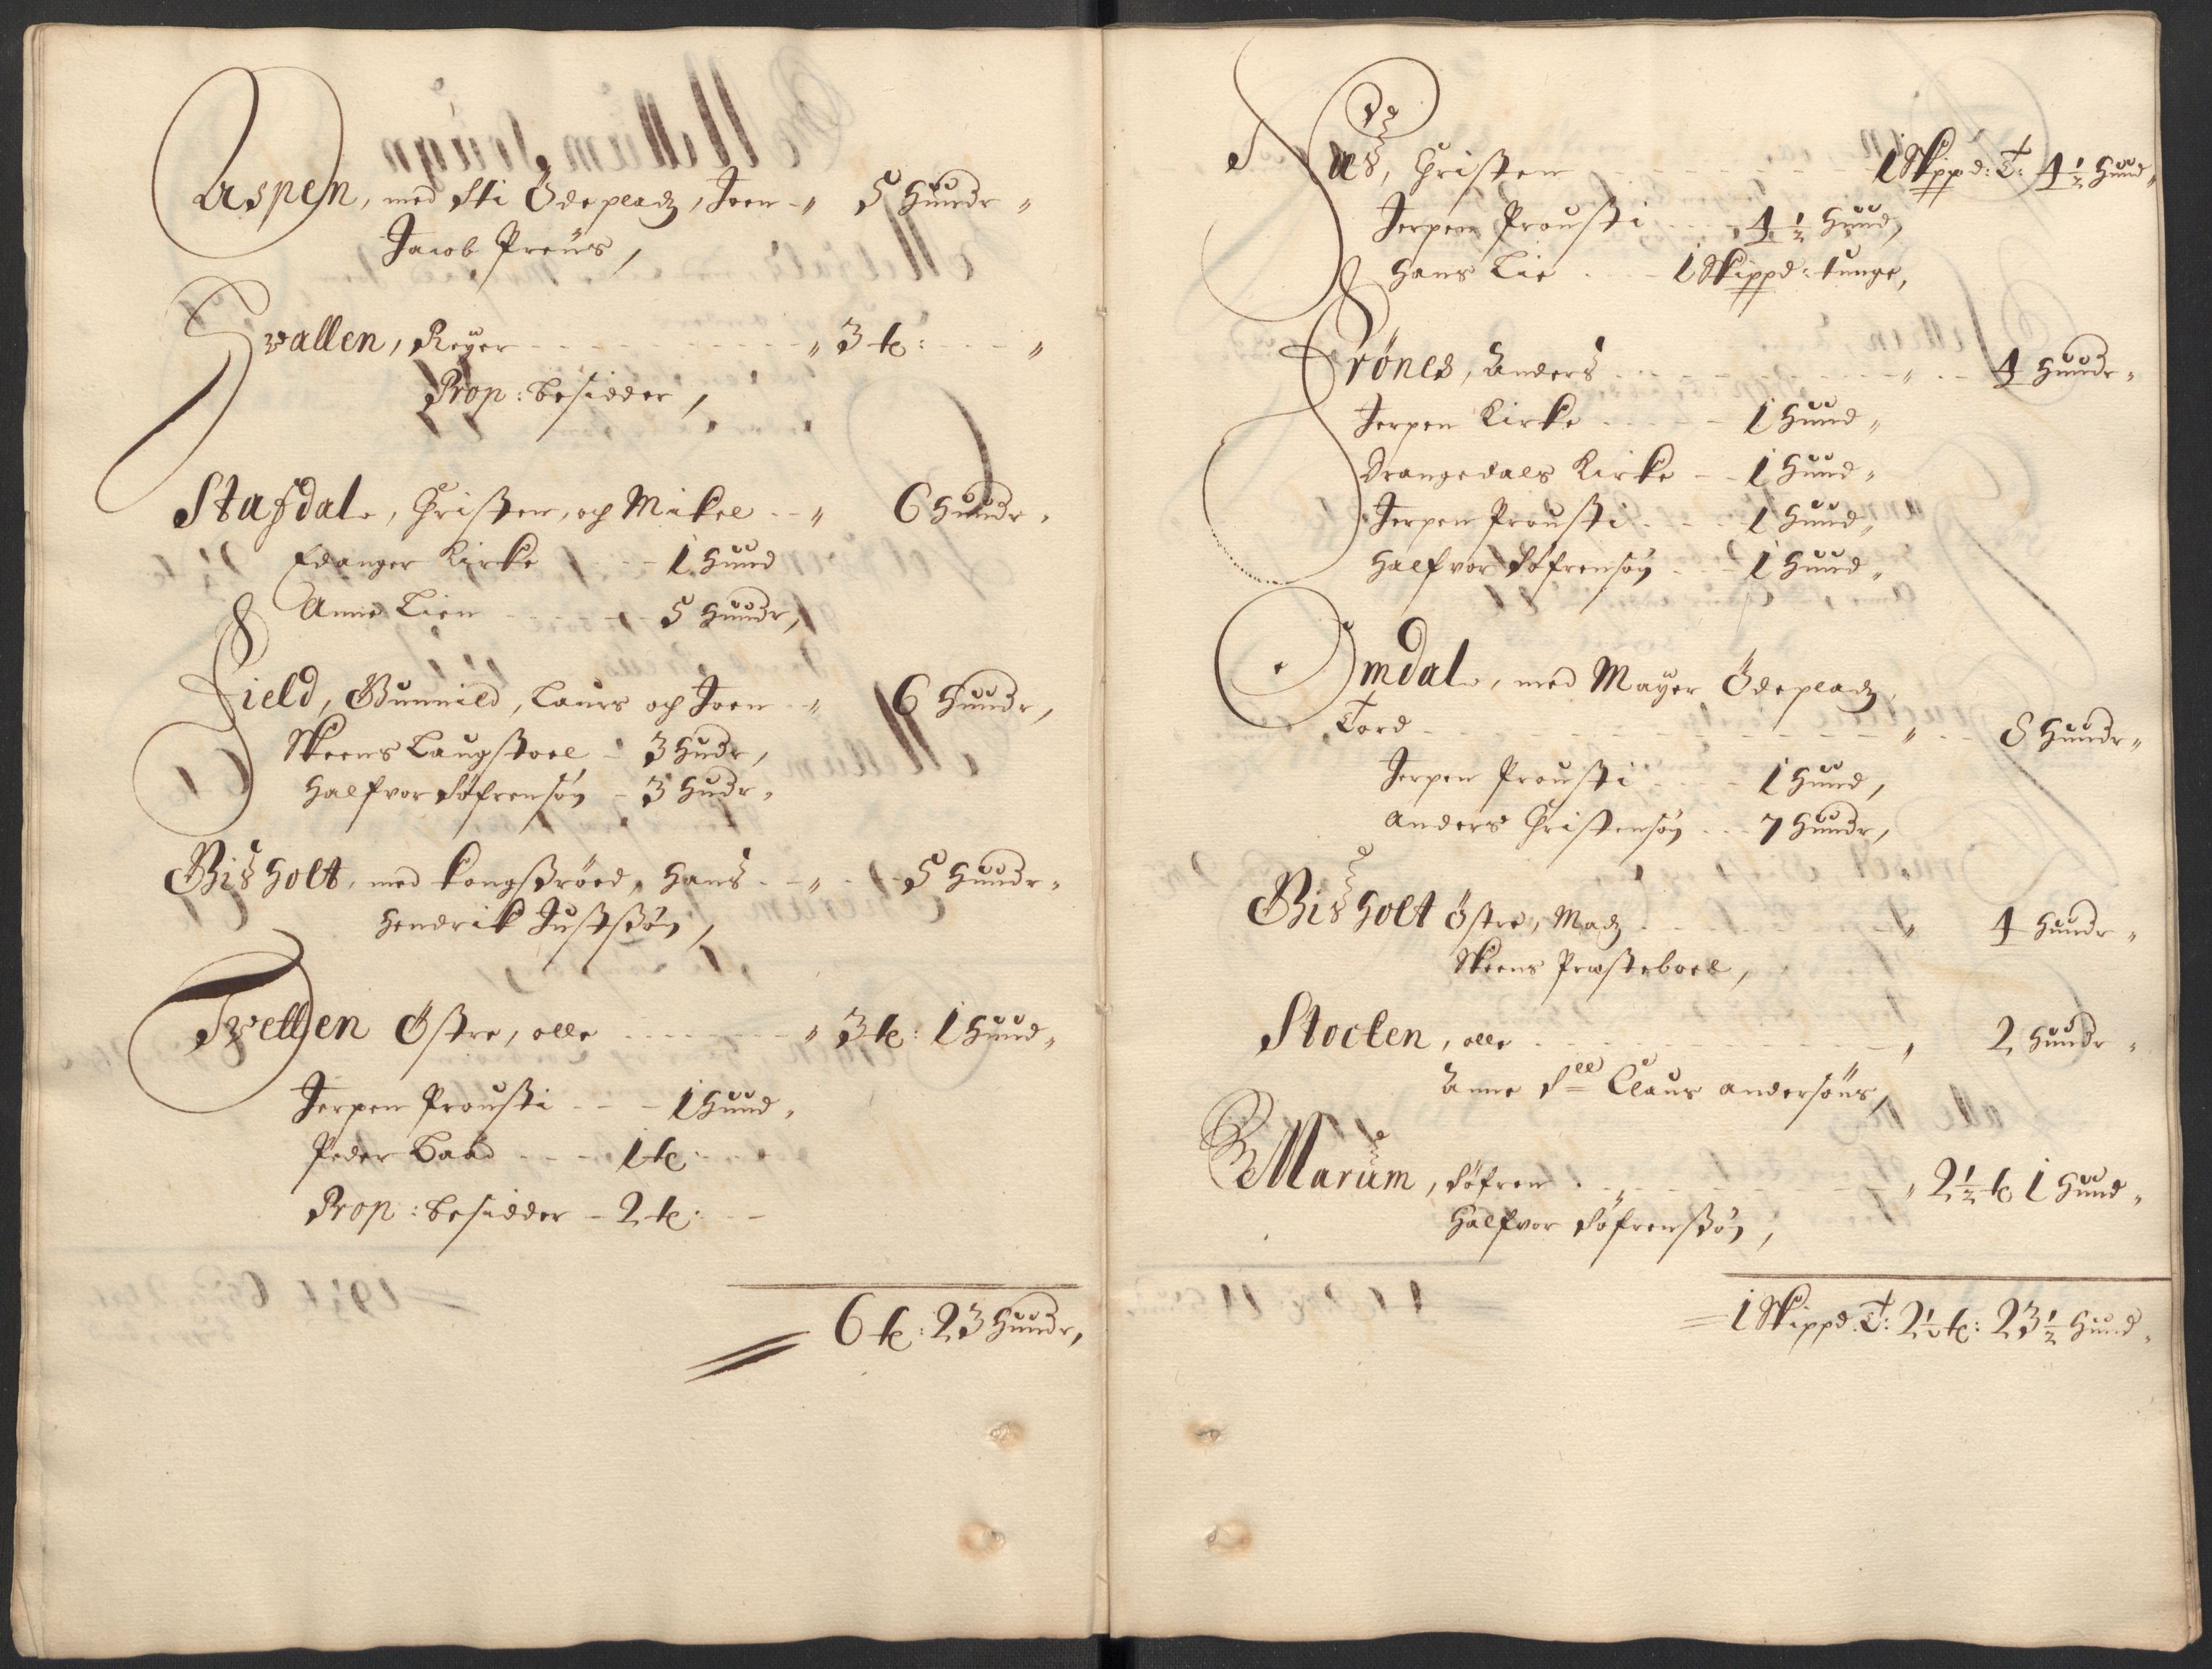 Aspen, med Sti Ödepladz, Joen - 5 Hundr
Jacob Preüs,
Svallen, Reyer - 3 tℓ:
Prop: besidder,
Stafdal, Christen, og Mikel - 6 Hundr,
Edanger Kirke - 1 Hund
Anne Lien - 5 Hundr,
Field, Gunnild, Laurs og Joen - 6 Hundr,
Skeens Laugstoel - 3 Hudr,
Halfvor Söfrensön - 3 Hudr,
Bisholt, med Kongsröed, Hans - 5 Hundr,
Hendrik Justsön,
Tvetten Östre, olle - 3 tℓ: 1 Hund,
Jerpen Prousti - 1 Hund,
Peder Baad - 1 tℓ:
Prop: besidder - 2 tℓ:
6 tℓ: 23 Hundr,
Næs, Christen - 1 Skippd: T: 4 1/2 Hund,
Jerpen Prousti - 4 1/2 Hund,
Hans Lie - 1 Skippd: tunge,
Frönes, Anders - 4 Hundr,
Jerpen Kirke - 1 Hund,
Drangedals Kirke - 1 Hund,
Jerpen Prousti - 1 Hund,
Halfvor Söfrensön - 1 Hund,
Omdal, med Mayer Ödepladz,
Tord - 8 Hundr,
Jerpen Prousti - 1 Hund,
Anders Christensön - 7 Hundr,
Bisholt Östre, Madz - 4 Hundr,
Skeens Præsteboel,
Stoclen, olle - 2 Hundr,
Anne Sll Claus andersöns,
Marum, Söfren - 2 1/2 tℓ 1 Hund,
Halfvor Söfrensön,
1 Skippd. T: 2 1/2 tℓ: 23 1/2 Hund,